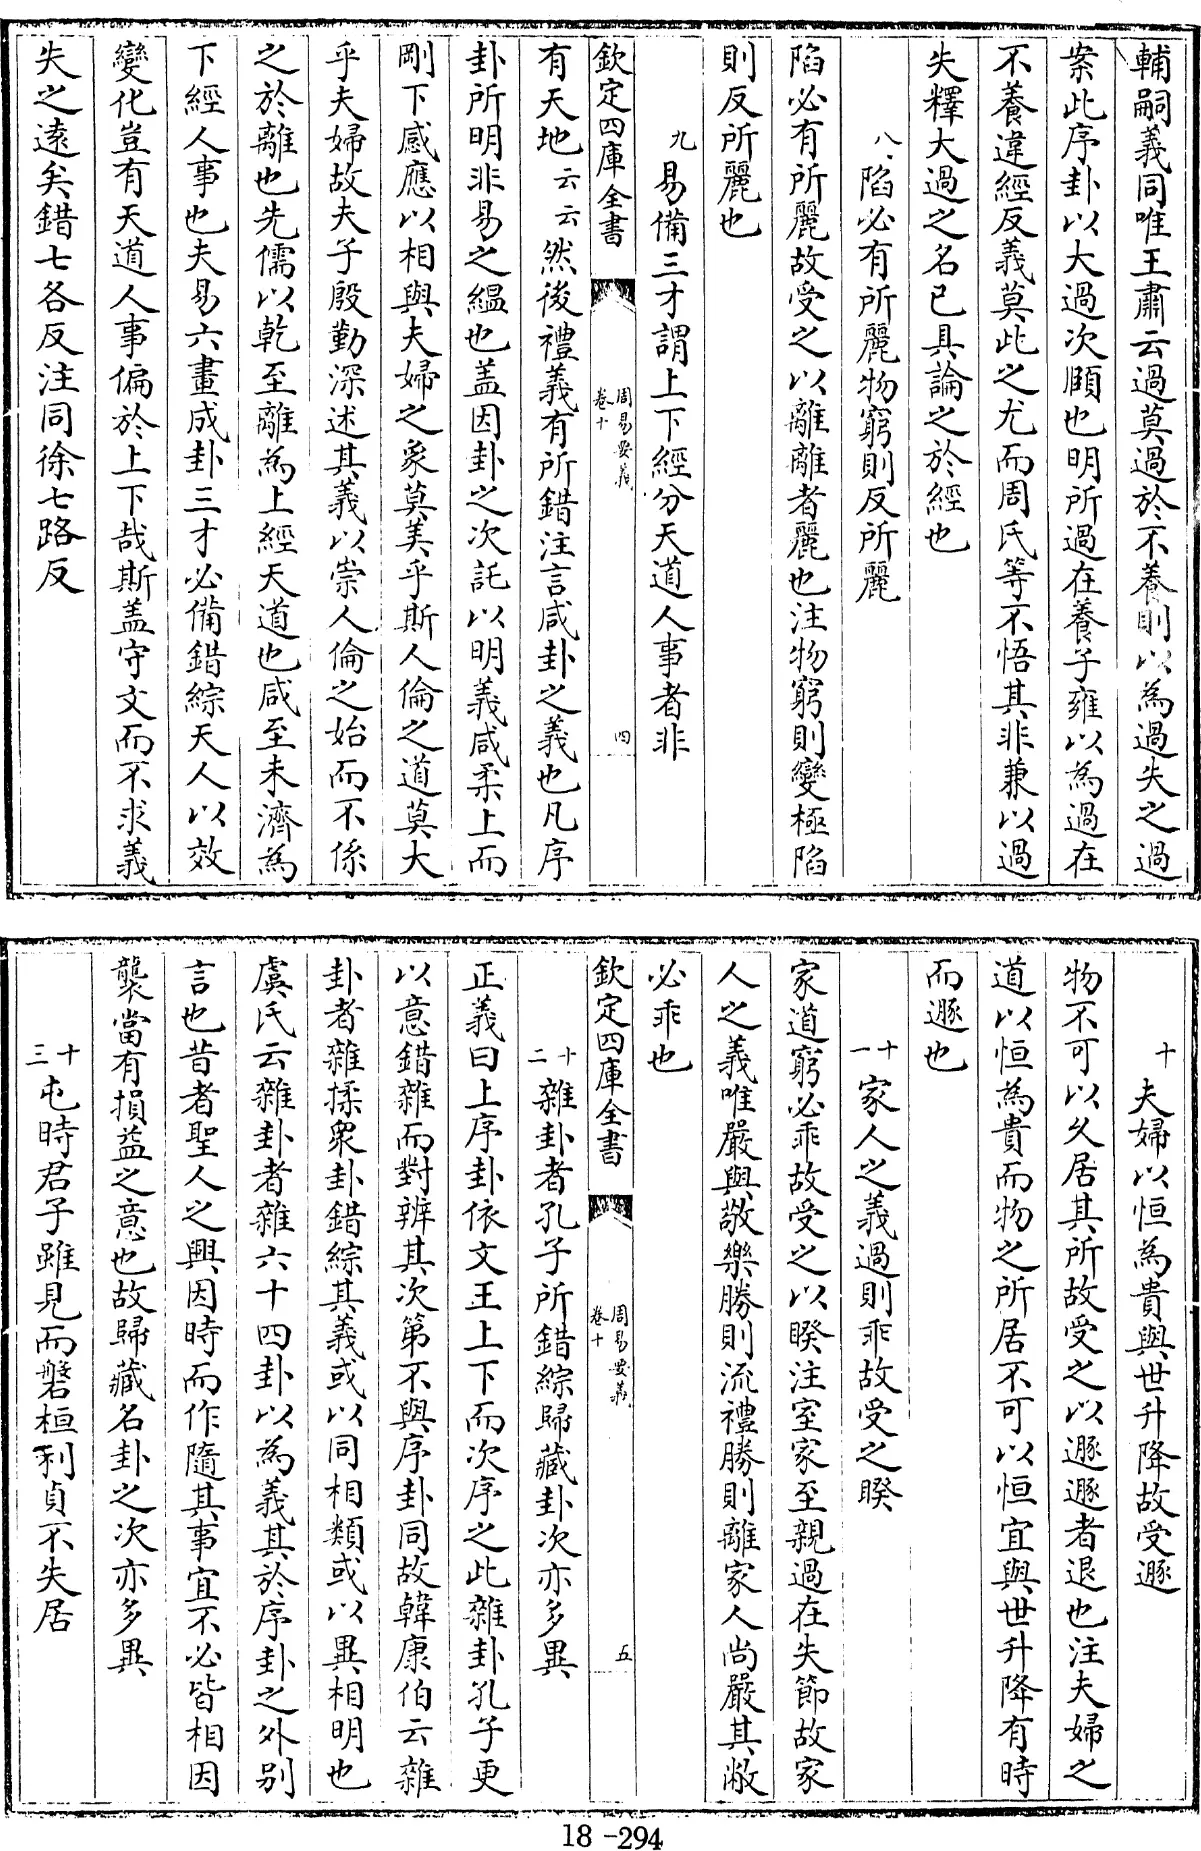 輔嗣義同唯王肅云過莫過於不養則以為過失之過
案此序卦以大過次頤也明所過在養子雍以為過在
不養違經反義莫此之尤而周氏等不悟其非兼以過
失釋大過之名已具論之於經也
八陷必有所麗物窮則反所麗
陷必有所麗故受之以離離者麗也注物窮則變極陷
則反所麗也
九易備三才謂上下經分天道人事者非
欽定四庫全書
周易要義
卷十
四
有天地云云然後禮義有所錯注言咸卦之義也凡序
卦所明非易之緼也盖因卦之次託以明義咸柔上而
剛下感應以相與夫婦之象莫美乎斯人倫之道莫大
乎夫婦故夫子殷勤深述其義以崇人倫之始而不係
之於離也先儒以乾至離為上經天道也咸至未濟為
下經人事也夫易六畫成卦三才必備錯綜天人以效
變化豈有天道人事偏於上下哉斯盖守文而不求義
失之遠矣錯七各反注同徐七路反
十夫婦以恒為貴與世升降故受遯
物不可以久居其所故受之以遯遯者退也注夫婦之
道以恒為貴而物之所居不可以恒宜與世升降有時
而遯也
十一家人之義過則乖故受之睽
家道窮必乖故受之以睽注室家至親過在失節故家
人之義唯嚴與敬樂勝則流禮勝則離家人尚嚴其敝
必乖也
欽定四庫全書
周易要義
卷十
五
十二雜卦者孔子所錯綜歸藏卦次亦多異
正義曰上序卦依文王上下而次序之此雜卦孔子更
以意錯雜而對辨其次第不與序卦同故韓康伯云雜
卦者雜揉衆卦錯綜其義或以同相類或以異相明也
虞氏云雜卦者雜六十四卦以為義其於序卦之外别
言也昔者聖人之興因時而作隨其事宜不必皆相因
襲當有損益之意也故歸藏名卦之次亦多異
十三屯時君子雖見而磐桓利貞不失居
18-294